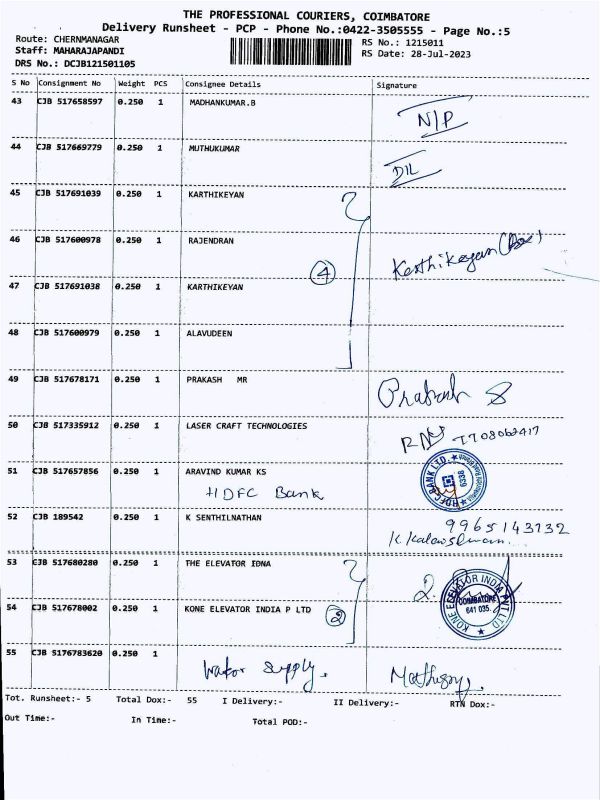 THE PROFESSIONAL COURIERS, COIMBATORE
Delivery Runsheet - PCP - Phone No.:0422-3505555 - Page No.:5
Route: CHERNMANAGAR
RS No.: 1215011
Staff: MAHARAJAPANDI
RS Date: 28-Jul-2023
DRS No.: DCJB121501105
S No Consignment No Weight PCS Consignee Details Signature
43 CJB 517658597 0.250 1 MADHANKUMAR.B N/P
44 CJB 517669779 0.250 1 MUTHUKUMAR D/L
45 CJB 517691039 0.250 1 KARTHIKEYAN
46 CJB 517600978 0.250 1 RAJENDRAN Karthikeyan
4
47 CJB 517691038 0.250 1 KARTHIKEYAN
48 CJB 517600979 0.250 1 ALAVUDEEN
49 CJB 517678171 0.250 1 PRAKASH MR Prakash S
50 CJB 517335912 0.250 1 LASER CRAFT TECHNOLOGIES
7708062417
51 CJB 517657856 0.250 1 ARAVIND KUMAR KS HDFC BANK LTD. 6338
HDFC Bank
52 CJB 189542 0.250 1 K SENTHILNATHAN 9965143132
53 CJB 517680280 0.250 1 THE ELEVATOR IDNA 2.
54 CJB 517678002 0.250 1 KONE ELEVATOR INDIA P LTD 2 KONE ELEVATOR INDIA PVT LTD COIMBATORE 641 035.
55 CJB 5176783620 0.250 1
supply.
Tot. Runsheet:- 5 Total Dox:- 55 I Delivery:- II Delivery:- RTN Dox:-
Out Time:- In Time:- Total POD:-